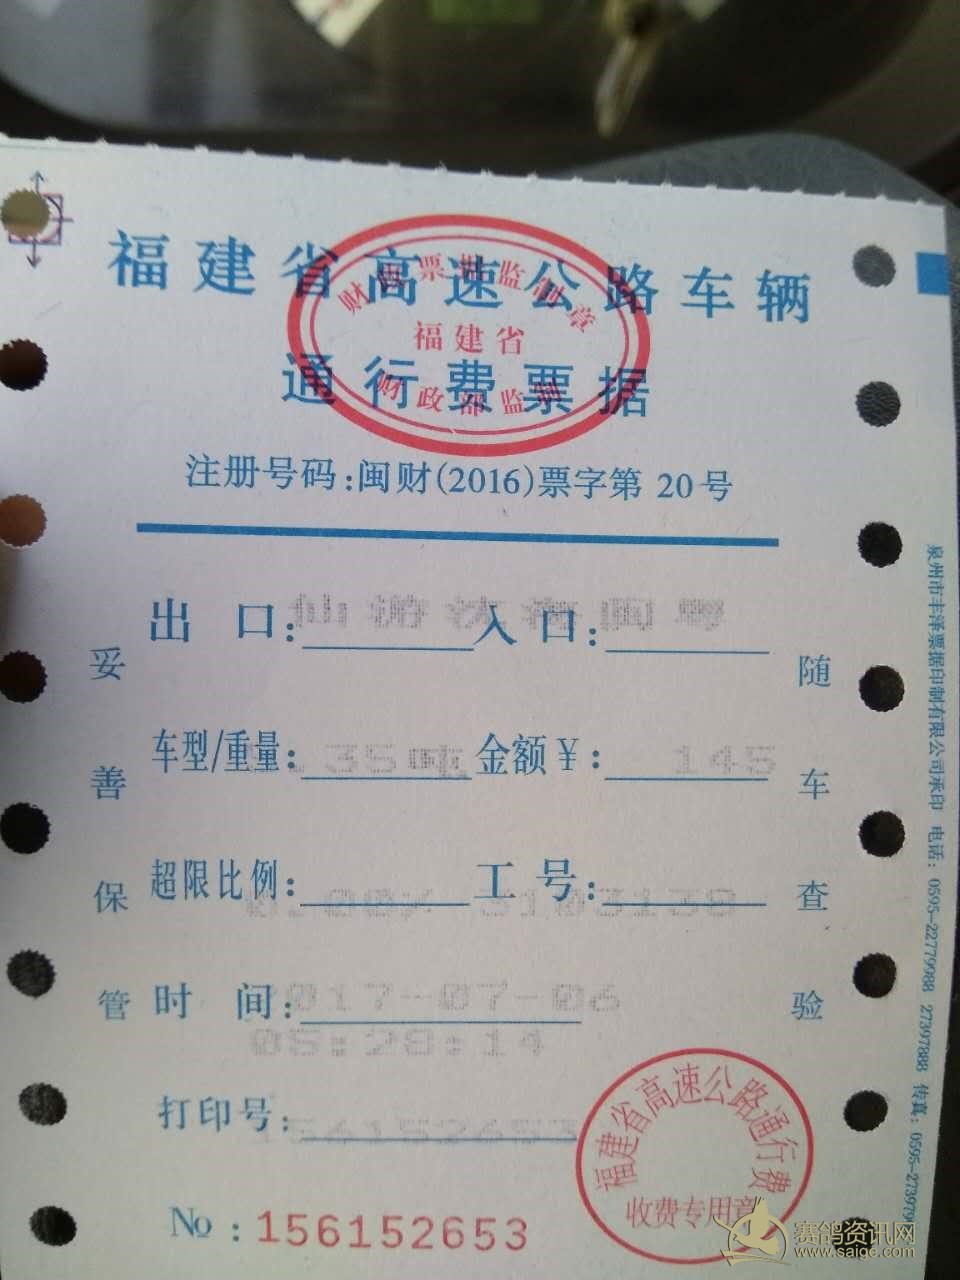 福建省高速公路车辆
通行费票据
福建省
注册号码:闽财(2016)票字第 20号
出 口: 仙游 入 口: 沈海闽粤
车型/重量: 35吨 金额￥: 145
超限比例: 0.00% 工 号: 3103138
时 间: 2017-07-06
05:28:14
打印号: 156152653
№ :156152653
妥善保管
随车查验
泉州市丰泽票据印制有限公司承印 电话: 0595-22779988 27397888 传真: 0595-273979
福建省高速公路通行费
收费专用章
赛鸽资讯网
www.saige.com